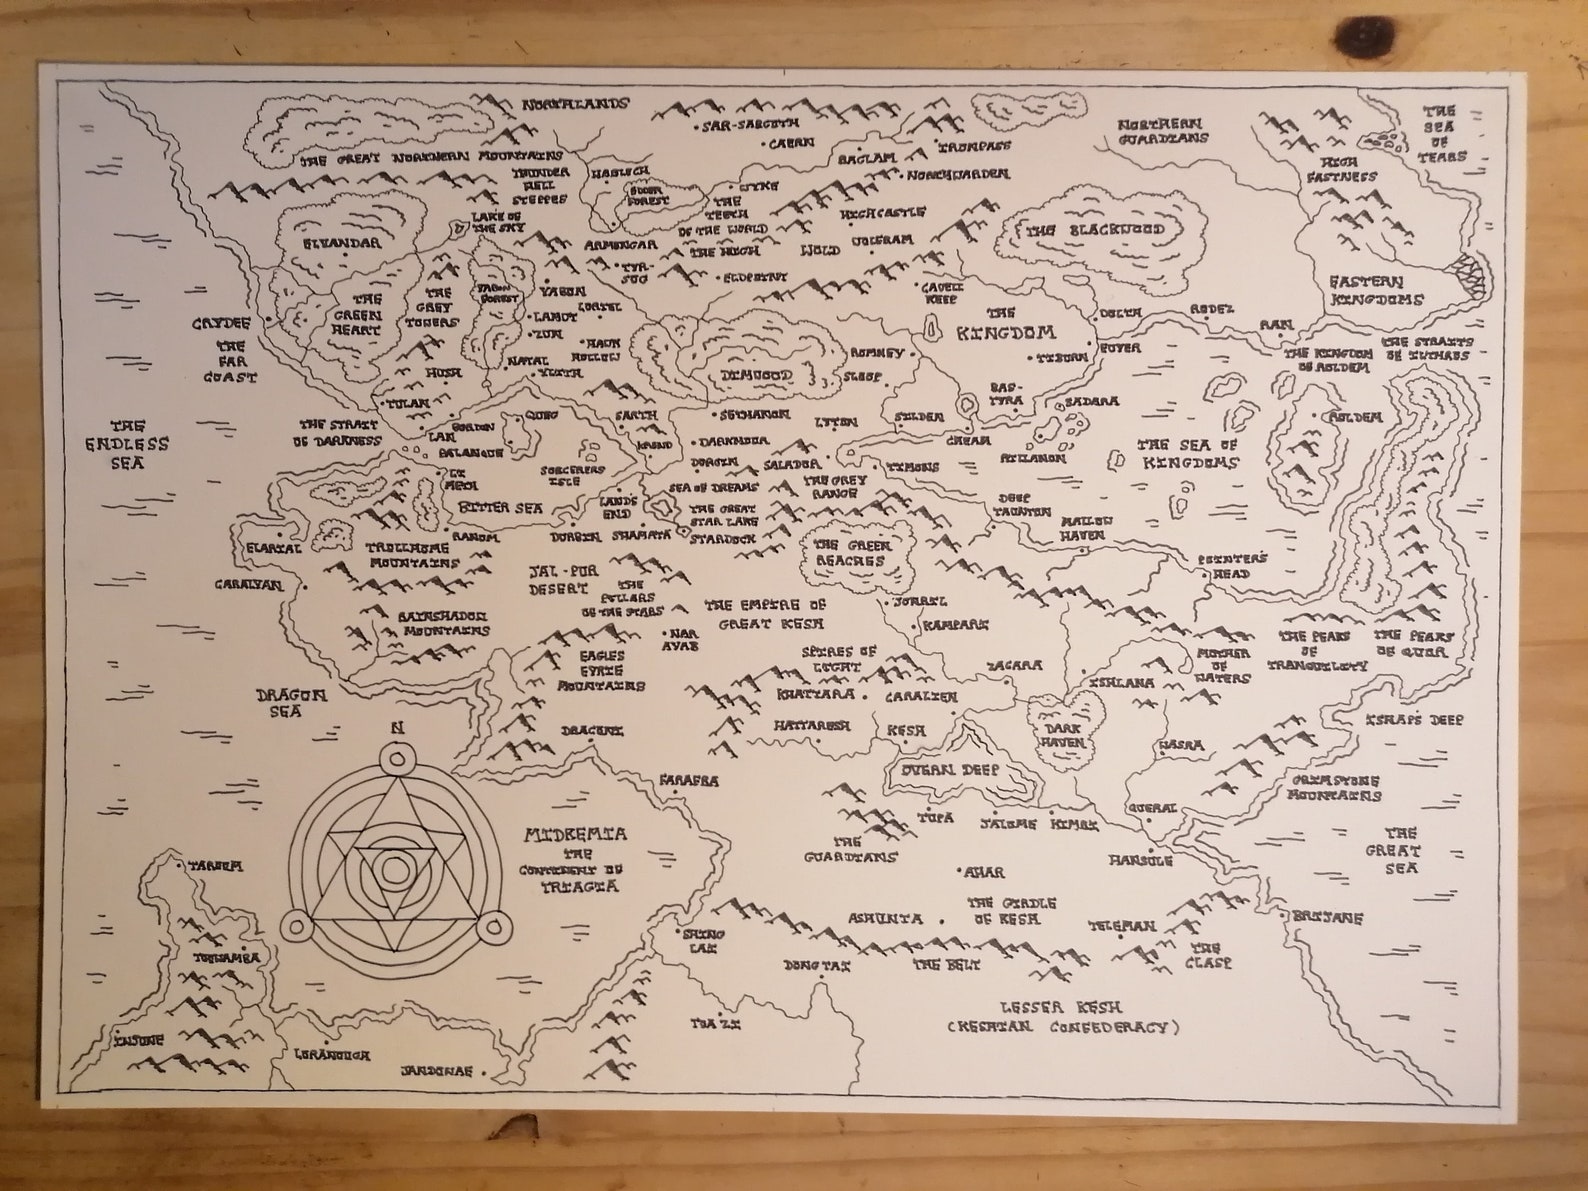 NORTHLANDS
SAR-SARGOTH
CAERN
THE GREAT NORTHERN MOUNTAINS
BAGLAM
IRONPASS
NORTHERN
GUARDIANS
THE
SEA
OF
TEARS
HIGH
FASTNESS
THUNDER
HELL
STEPPES
HABLOCH
EDDER
FOREST
WYKE
NORTHWARDEN
THE
TEETH
OF THE WORLD
HIGHCASTLE
LAKE OF
THE SKY
ELVANDAR
ARMENGAR
THE HIGH
WOLD
WOLFRAM
THE BLACKWOOD
TYR-
SOG
ELDPOINT
CAVELL
KEEP
EASTERN
KINGDOMS
THE
GREEN
HEART
THE
GREY
TOWERS
YABON
FOREST
YABON
LORIEL
LAMUT
ZUN
HAWK
HOLLOW
NATAL
YLITH
CRYDEE
THE
FAR
COAST
HUSH
DIMWOOD
ROMNEY
SLOOP
THE
KINGDOM
DOLTH
RODEZ
RAN
EUPER
TIBURN
THE KINGDOM
OF ROLDEM
THE STRAITS
ROLDEM
TULAN
THE STRAIT
OF DARKNESS
GORDON
LAN
PALANQUE
QUEG
SARTH
KROND
SETHANON
DARKMOOR
DORGIN
LYTON
SILDEN
CHEAM
BAS-
TYRA
SADARA
THE
ENDLESS
SEA
SORCERERS
ISLE
SALADOR
TIMONS
THE SEA OF
KINGDOMS
LI
METH
BITTER SEA
LAND'S
END
SEA OF DREAMS
THE GREY
RANGE
THE GREAT
STAR LAKE
STARDOCK
DEEP
TAUNTON
MALLOW
HAVEN
ELARIAL
RANOM
DURBIN
SHAMATA
TROLLHOME
MOUNTAINS
THE GREEN
REACHES
POINTER'S
HEAD
CARALYAN
JAL-PUR
DESERT
THE
PILLARS
OF THE STARS
RAINSHADOW
MOUNTAINS
THE EMPIRE OF
GREAT KESH
JONRIL
KAMPARK
NAR
AYAB
EAGLES
EYRIE
MOUNTAINS
SPIRES OF
LIGHT
KHATTARA
CARALIEN
ZACARA
ISHLANA
MOTHER
OF
WATERS
THE PEAKS
OF
TRANQUILITY
THE PEAKS
OF QUOR
DRAGON
SEA
N
DRACONI
HATTARESH
KESH
DARK
HAVEN
NASRA
OVERN DEEP
FARAFRA
GRIMSTONE
MOUNTAINS
TUPA
JALOME
KIMRI
QUERAL
THE
GUARDIANS
HANSULE
THE
GREAT
SEA
MIDKEMIA
THE
CONTINENT OF
TRIAGIA
TAROOM
AHAR
ASHUNTA
THE GIRDLE
OF KESH
TELEMAN
BRIJANE
SHING
LAI
DONG TAI
THE BELT
THE
CLASP
TOOWOMBA
TOA ZI
LESSER KESH
(KESHIAN CONFEDERACY)
INJUNE
LORANOUGA
JANDOWAE